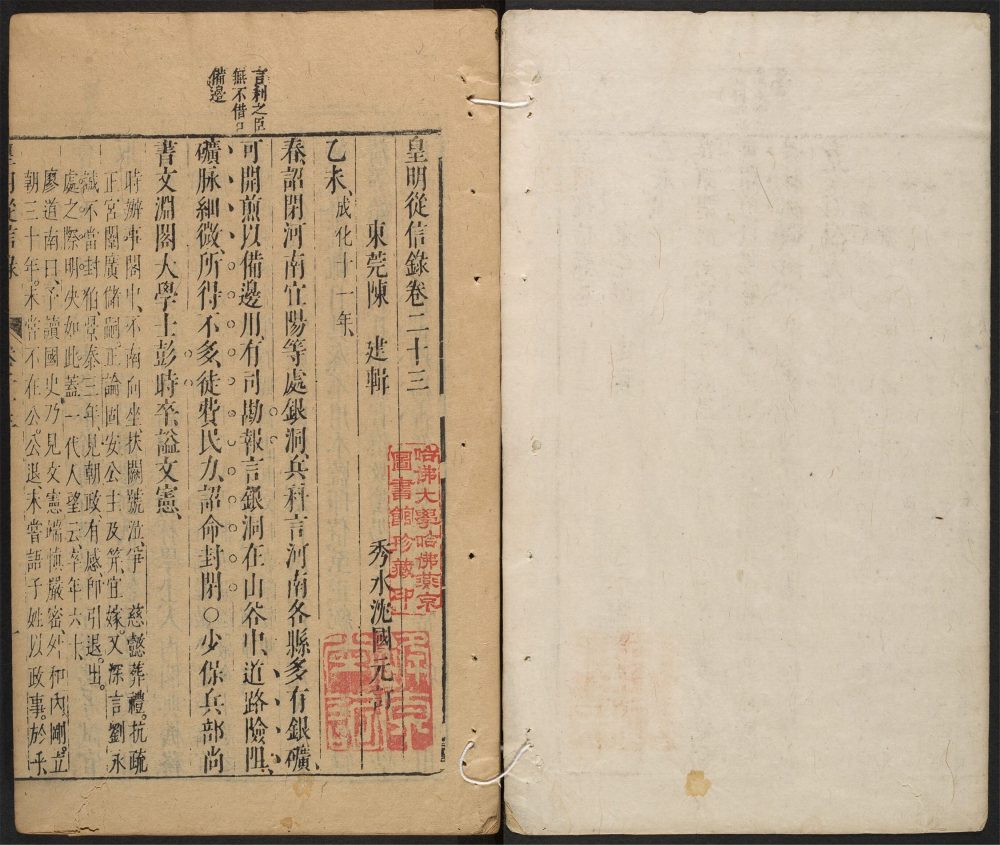 言利之臣
無不借口
備邊
皇明從信錄卷二十三
東莞陳 建輯
秀水沈國元訂
乙未、成化十一年、
春、詔閉河南宜陽等處銀洞、兵科言河南各縣多有銀礦、
可開煎以備邊用、有司勘報言銀洞在山谷中、道路險阻、
礦脉細微、所得不多、徒費民力、詔命封閉○少保兵部尚
書文淵閣大學士彭時卒、謚文憲、
時辦事閣中、不南向坐、扶闕號泣、爭 慈懿葬禮。抗疏
正宮闈廣儲嗣、正論固安公主及笄、宜嫁。又深言劉永
誠不當封狛、景泰三年見朝政、有感、卽引退。出
處之際明決如此、蓋一代人望云、卒年六十、
廖道南曰、予讀國史、乃見文憲端慎嚴密、外和內剛。立
朝三十年。未嘗不在公。公退、未嘗語子姓以政事。於乎、
皇明從信錄
哈佛大學哈佛燕京
圖書館珍藏印